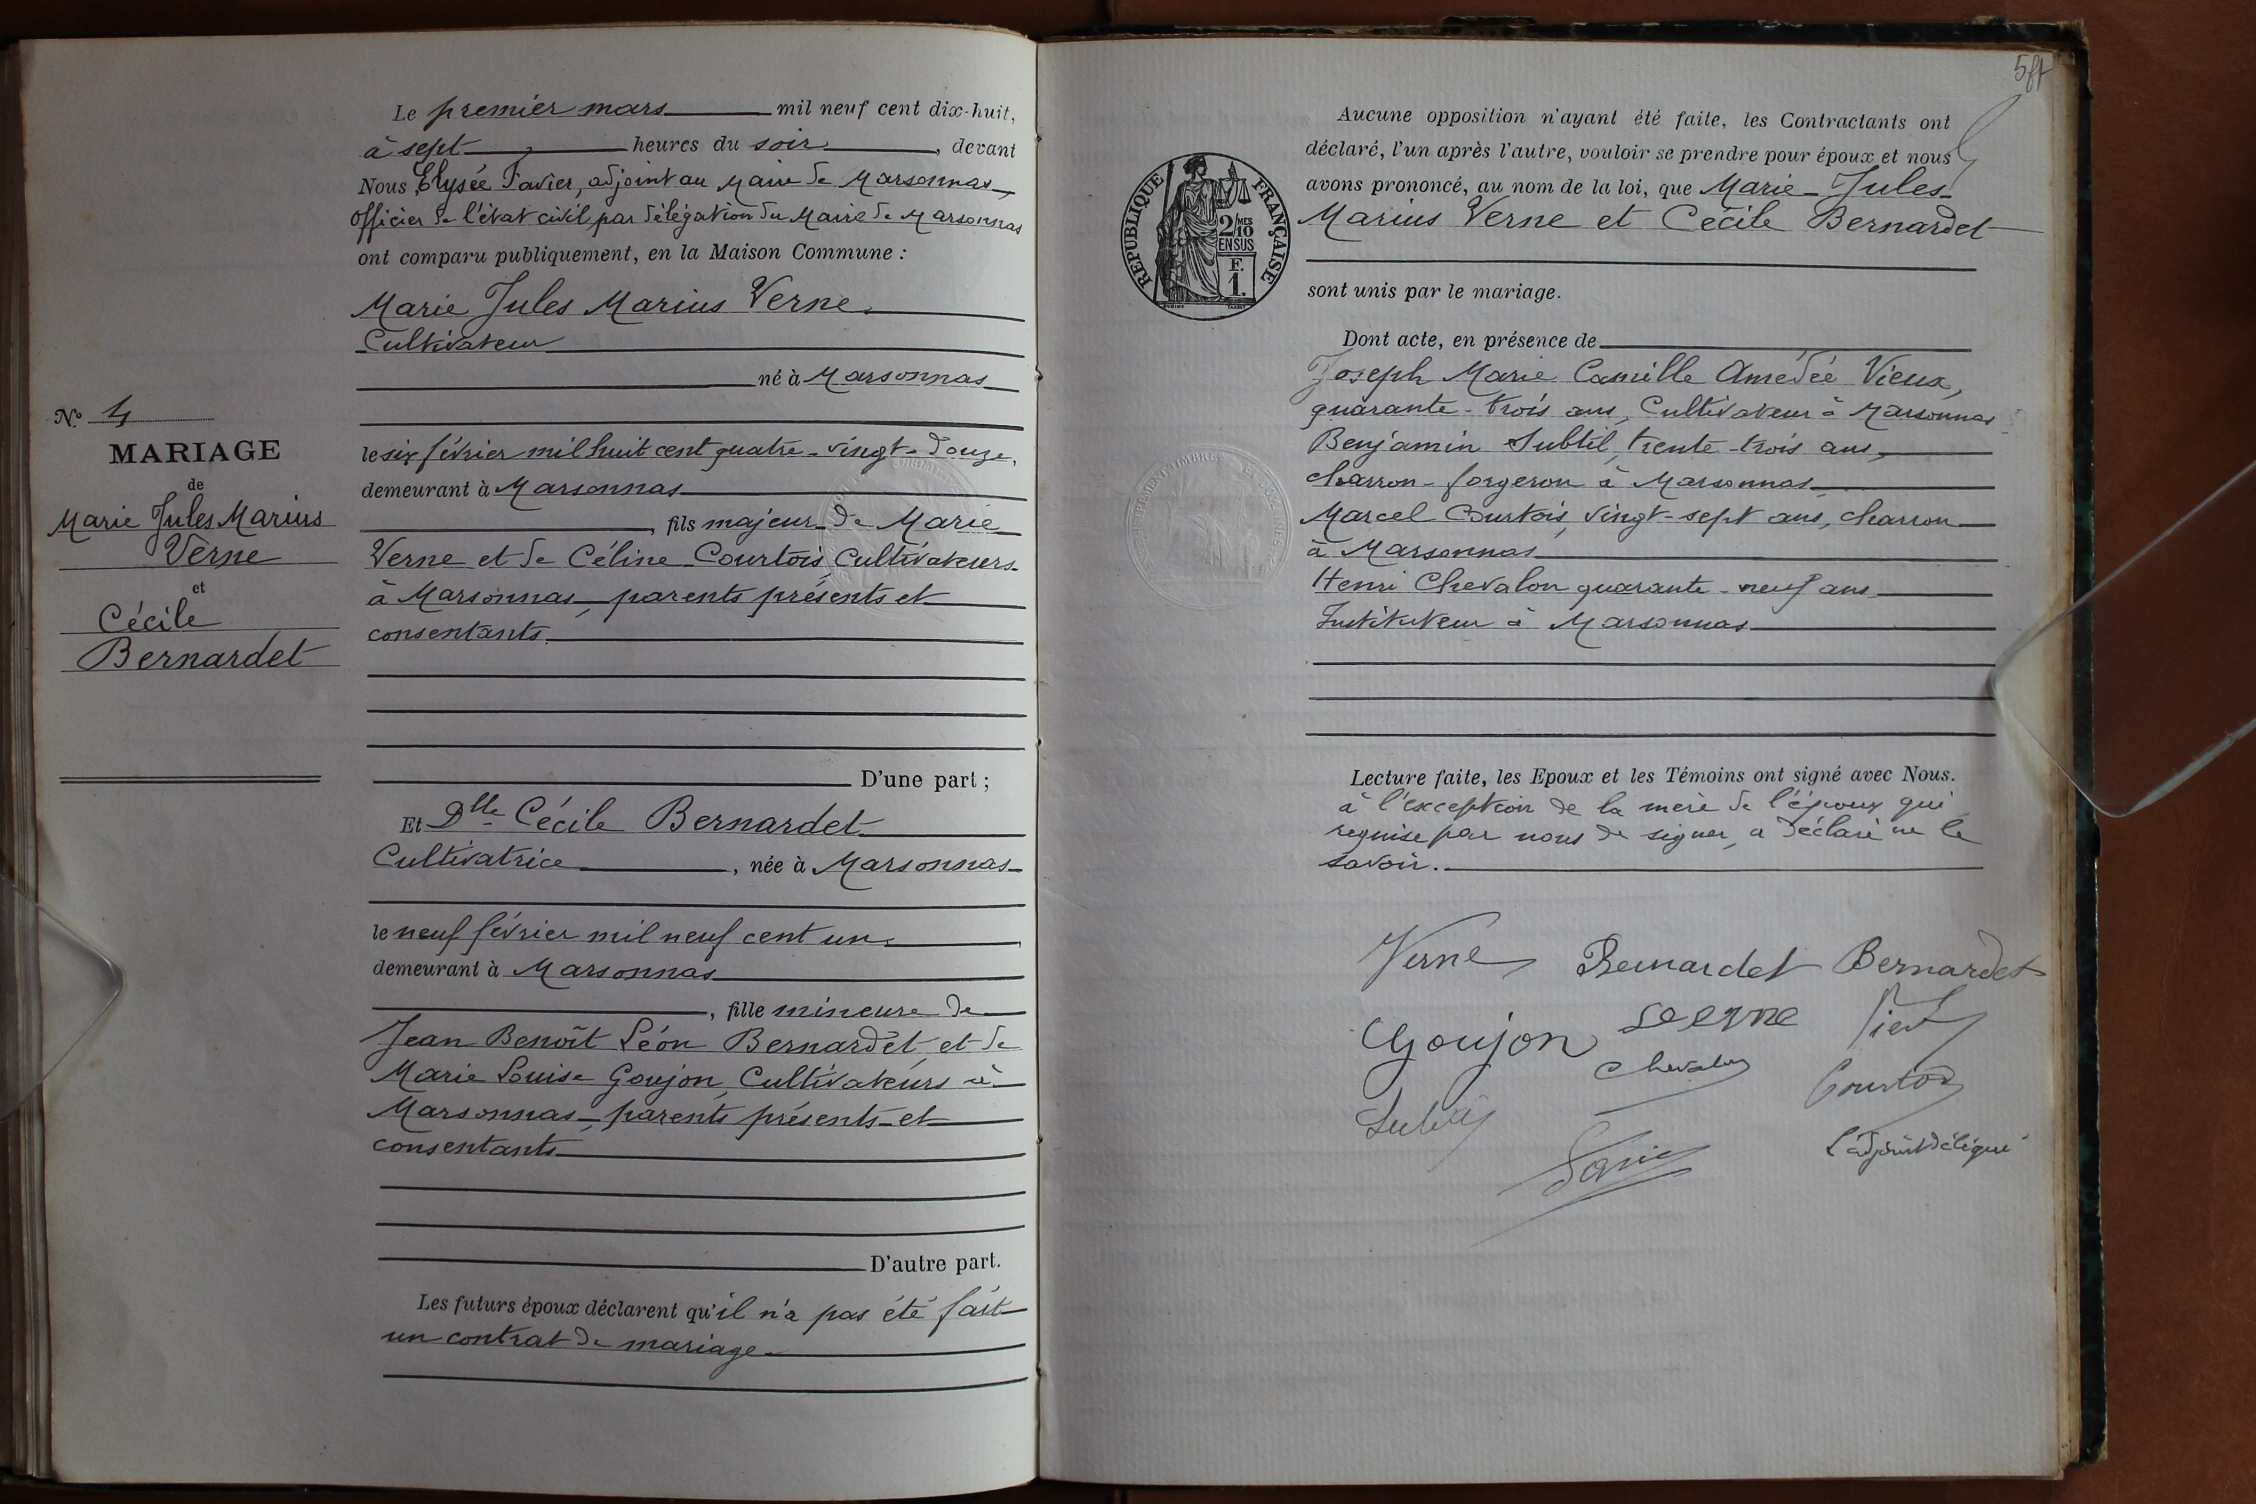 Le premier mars mil neuf cent dix-huit,
à sept heures du soir, devant
Nous Elysée Favier, adjoint au Maire de Marsonnas,
officier de l'état civil par délégation du Maire de Marsonnas
ont comparu publiquement, en la Maison Commune :
Marie Jules Marius Verne
Cultivateur
né à Marsonnas
le six février mil huit cent quatre-vingt-douze,
demeurant à Marsonnas
, fils majeur de Marie
Verne et de Céline Courtois, Cultivateurs
à Marsonnas, parents présents et
consentants.
D'une part ;
Et Dlle Cécile Bernardet
Cultivatrice, née à Marsonnas
le neuf février mil neuf cent un,
demeurant à Marsonnas
, fille mineure de
Jean Benoît Léon Bernardet, et de
Marie Louise Goujon, Cultivateurs à
Marsonnas, parents présents et
consentants
D'autre part.
Les futurs époux déclarent qu'il n'a pas été fait
un contrat de mariage.
No 4
MARIAGE
de
Marie Jules Marius
Verne
et
Cécile
Bernardet
Aucune opposition n'ayant été faite, les Contractants ont
déclaré, l'un après l'autre, vouloir se prendre pour époux et nous
avons prononcé, au nom de la loi, que Marie-Jules-
Marius Verne et Cécile Bernardet
sont unis par le mariage.
RÉPUBLIQUE FRANÇAISE
2 MES
10
EN SUS
F.
1.
Dont acte, en présence de
Joseph Marie Camille Amédée Vieux,
quarante-trois ans, Cultivateur à Marsonnas
Benjamin Subtil, trente-trois ans,
charron-forgeron à Marsonnas
Marcel Courtois, vingt-sept ans, charron
à Marsonnas
Henri Chevalon quarante-neuf ans
Instituteur à Marsonnas
Lecture faite, les Epoux et les Témoins ont signé avec Nous.
à l'exception de la mère de l'époux qui
requise par nous de signer, a déclaré ne le
savoir.
Verne Bernardet Bernardet
Goujon Verne
Chevalon Courtois
Subtil
Favier L'adjoint délégué